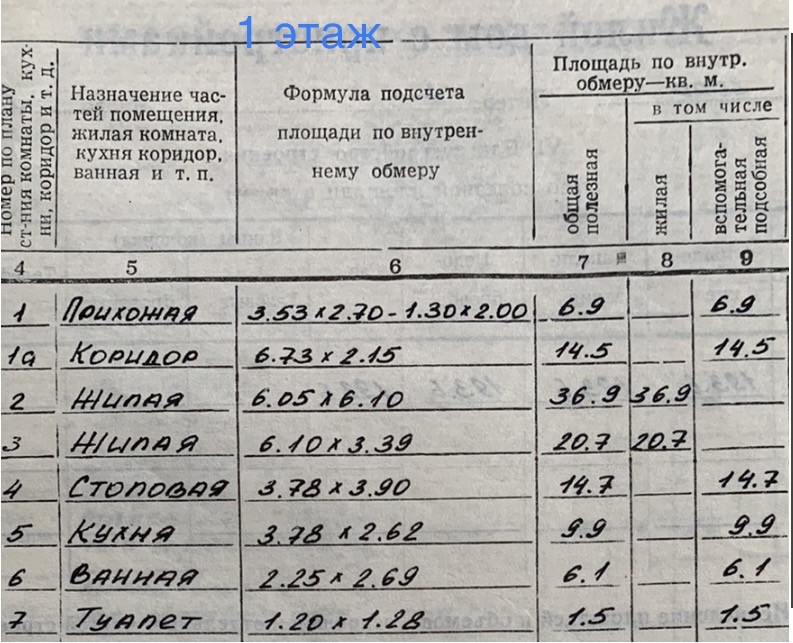 1 этаж
Номер по плану
ст-ния комнаты, кух-
ни, коридор и т. д.
Назначение час-
тей помещения,
жилая комната,
кухня коридор,
ванная и т. п.
Формула подсчета
площади по внутрен-
нему обмеру
Площадь по внутр.
обмеру—кв. м.
общая
полезная
в том числе
жилая
вспомога-
тельная
подсобная
4 5 6 7 8 9
1 Прихожая 3.53 x 2.70 - 1.30 x 2.00 6.9 6.9
1а Коридор 6.73 x 2.15 14.5 14.5
2 Жилая 6.05 x 6.10 36.9 36.9
3 Жилая 6.10 x 3.39 20.7 20.7
4 Столовая 3.78 x 3.90 14.7 14.7
5 Кухня 3.78 x 2.62 9.9 9.9
6 Ванная 2.25 x 2.69 6.1 6.1
7 Туалет 1.20 x 1.28 1.5 1.5